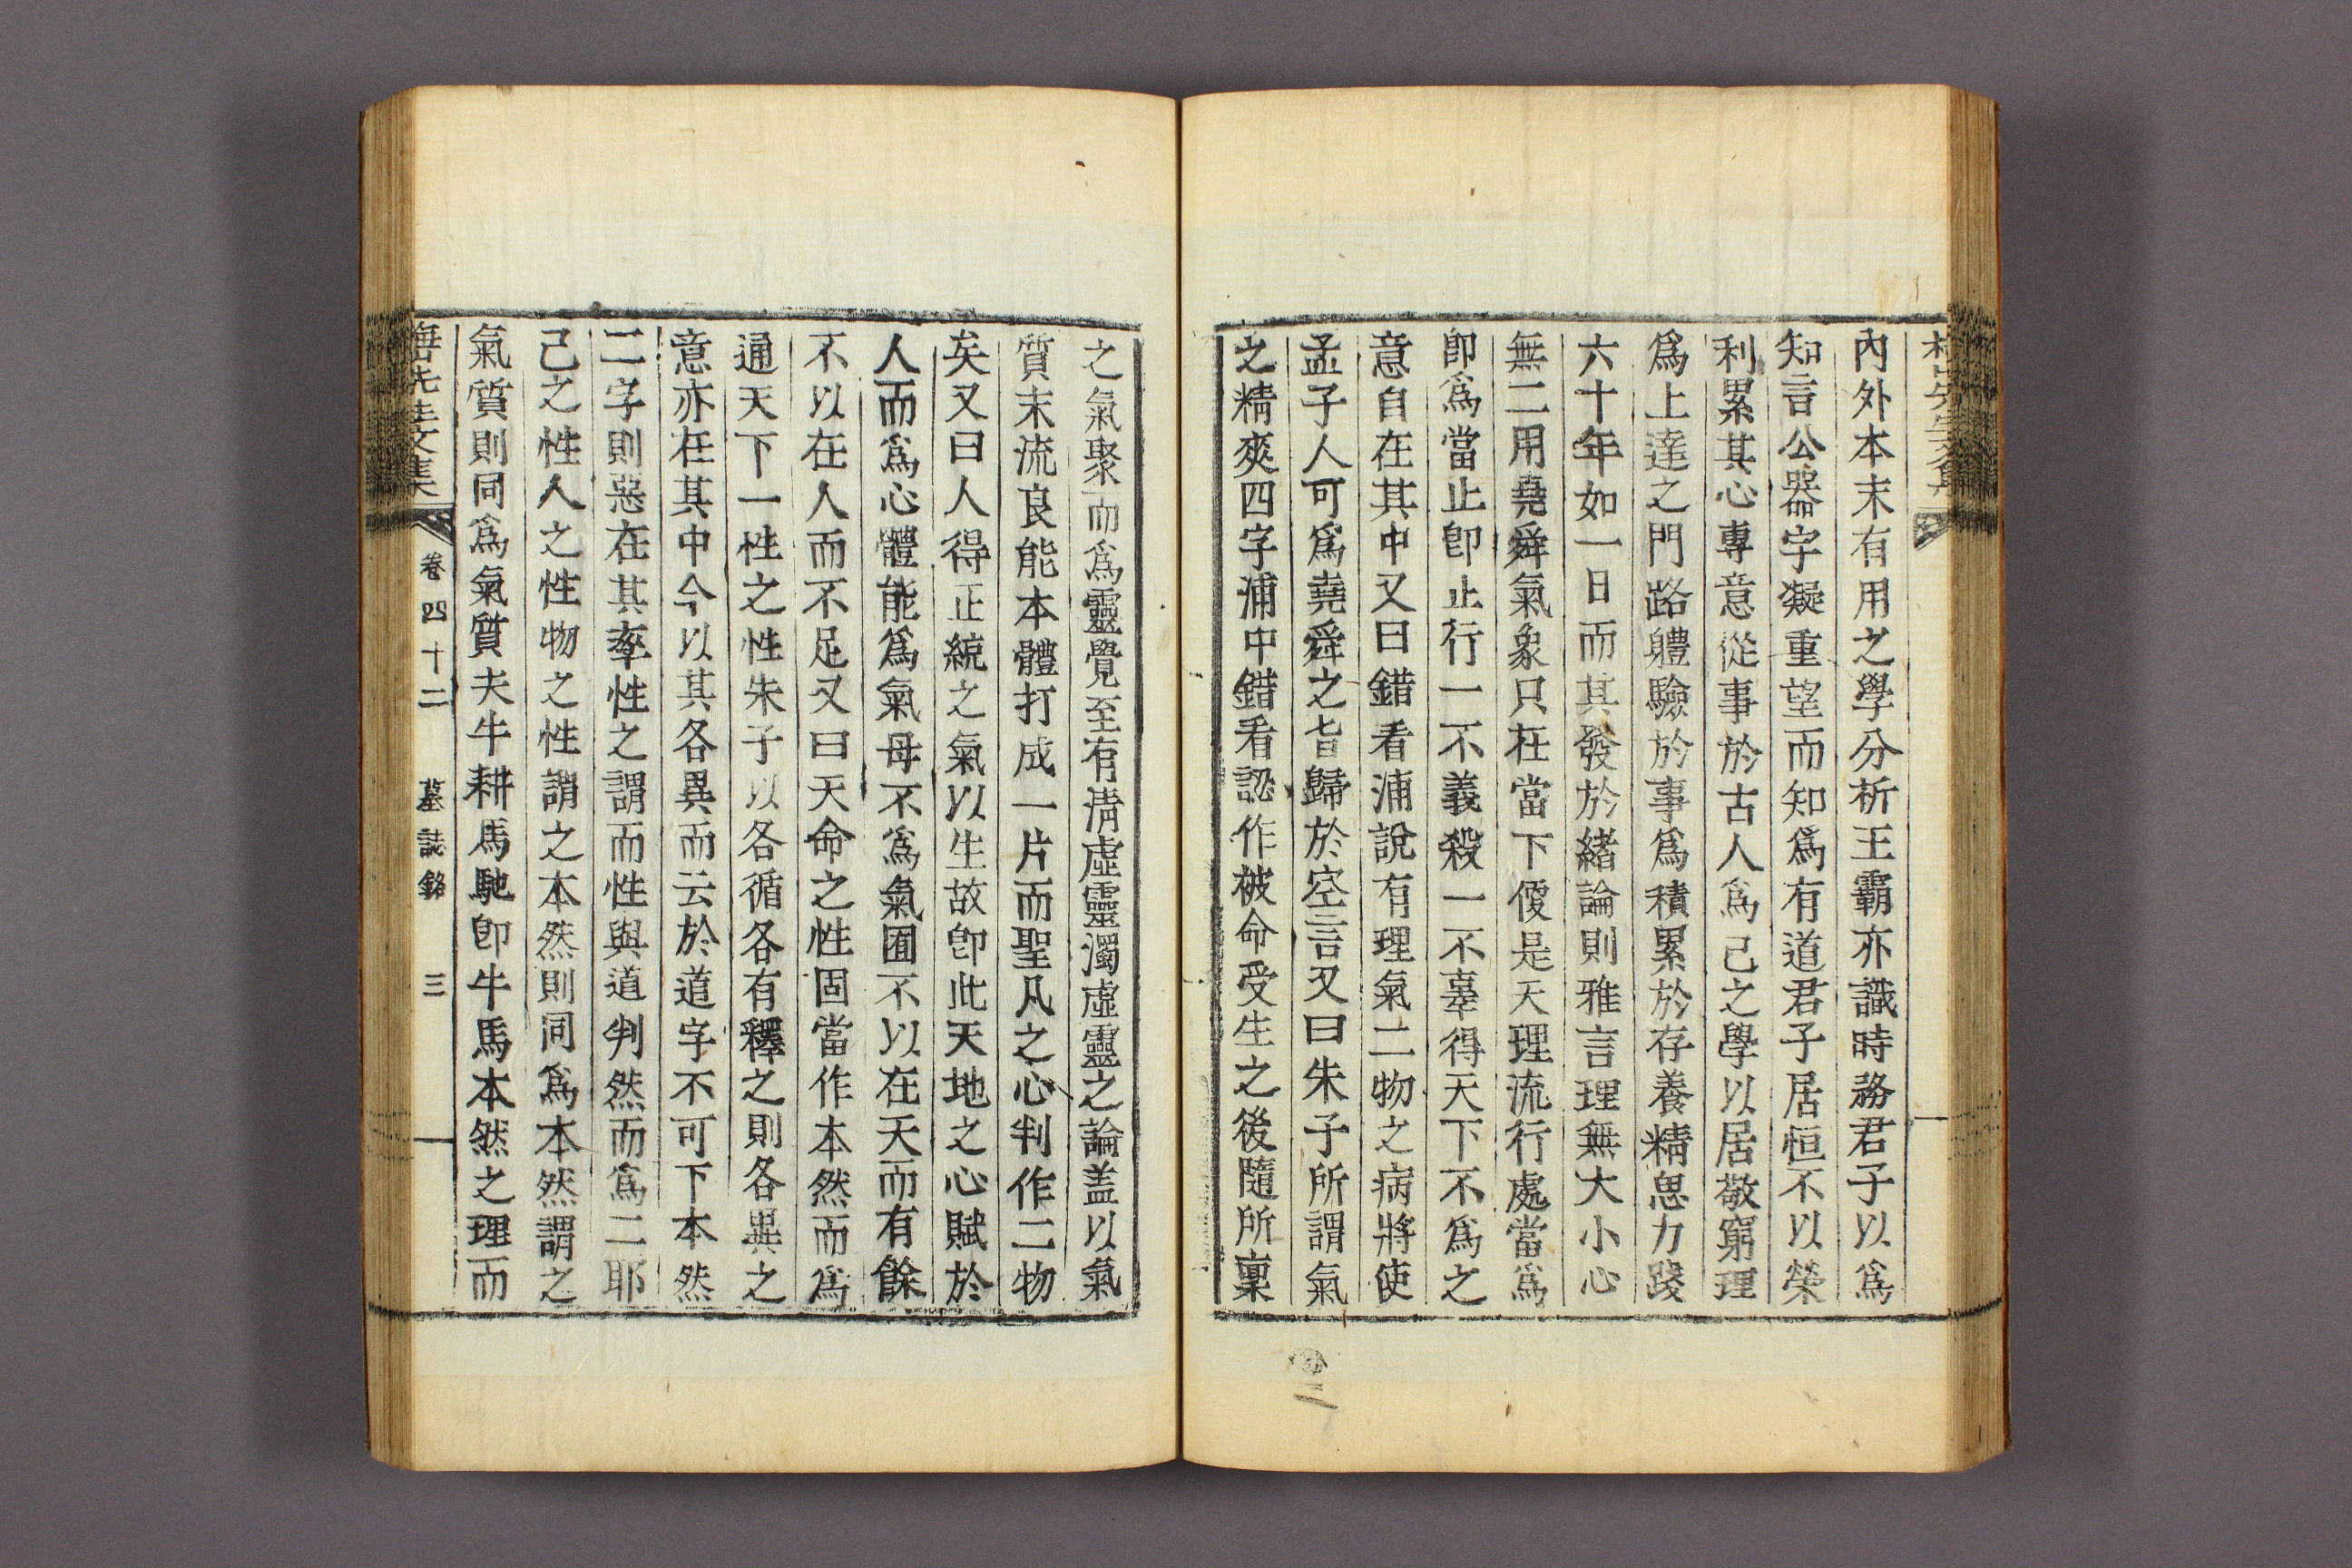 內外本末有用之學分析王霸亦識時務君子以爲
知言公器宇凝重望而知爲有道君子居恒不以榮
利累其心專意從事於古人爲己之學以居敬窮理
爲上達之門路軆驗於事爲積累於存養精思力踐
六十年如一日而其發於緖論則雅言理無大小心
無二用堯舜氣象只在當下便是天理流行處當爲
卽爲當止卽止行一不義殺一不辜得天下不爲之
意自在其中又曰錯看浦說有理氣二物之病將使
孟子人可爲堯舜之旨歸於空言又曰朱子所謂氣
之精爽四字浦中錯看認作被命受生之後隨所稟
之氣聚而爲靈覺至有淸虛靈濁虛靈之論盖以氣
質末流良能本體打成一片而聖凡之心判作二物
矣又曰人得正統之氣以生故卽此天地之心賦於
人而爲心體能爲氣母不爲氣囿不以在天而有餘
不以在人而不足又曰天命之性固當作本然而爲
通天下一性之性朱子以各循各有釋之則各異之
意亦在其中今以其各異而云於道字不可下本然
二字則惡在其率性之謂而性與道判然而爲二耶
己之性人之性物之性謂之本然則同爲本然謂之
氣質則同爲氣質夫牛耕馬馳卽牛馬本然之理而
先生文集 卷四十二 墓誌銘 三